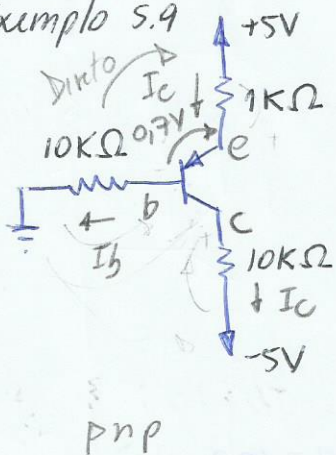 xemplo 5.9
+5V
Direto
Ic
1KΩ
0,7V
10KΩ
e
b
Ib
c
10KΩ
Ic
-5V
pnp